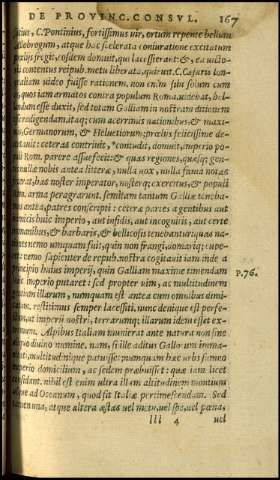 DE PROVINC. CONSVL. 167
C. Pontinius, fortissimus uir, ortum repente bellum
atque hac scelerata coniuratione excitatum
fregit: eosdem domuit, qui lacesserant: &, ea uicto-
contentus reipub. metu liberata, quieuit. C. Cæsaris lon-
uideo fuisse rationem. non enim sibi solum cum
quos iam armatos contra populum Romanum
esse duxit, sed totam Galliam in nostram ditionem
redigendam. itaq; cum acerrimis nationibus, & maxi-
Germanorum, & Heluetiorum prœlijs felicissime de-
ceteras conterruit, * contudit, domuit, imperio po-
Rom. parere assuefecit: & quas regiones, quasq; gen-
nullæ nobis antea litteræ, nulla uox, nulla fama notas
has noster imperator, nosterq; exercitus, & populi
arma peragrarunt. semitam tantum Galliæ teneba-
antea, patres conscripti: ceteræ partes a gentibus aut
huic imperio, aut infidis, aut incognitis, aut certe
& barbaris, & bellicosis tenebantur: quas na-
nemo umquam fuit, quin frangi, domariq; cupe-
nemo sapienter de repub. nostra cogitauit iam inde a
principio huius imperij, quin Galliam maxime timendam
huic imperio putaret: sed propter uim, ac multitudinem
illarum, numquam est antea cum omnibus dimi-
restitimus semper lacessiti. nunc denique est perfe-
imperij nostri, terrarumq; illarum idem esset ex-
Alpibus Italiam munierat ante natura non sine
diuino numine. nam, si ille aditus Gallorum imma-
multitudiniq; patuisset: numquam hæc urbs summo
imperio domicilium, ac sedem præbuisset: quæ iam licet
nihil est enim ultra illam altitudinem montium
ad Oceanum, quod sit Italiæ pertimescendum. Sed
una, atque altera æstas uel metu, uel spe, uel pœna,
P.76.
lll 4 uel